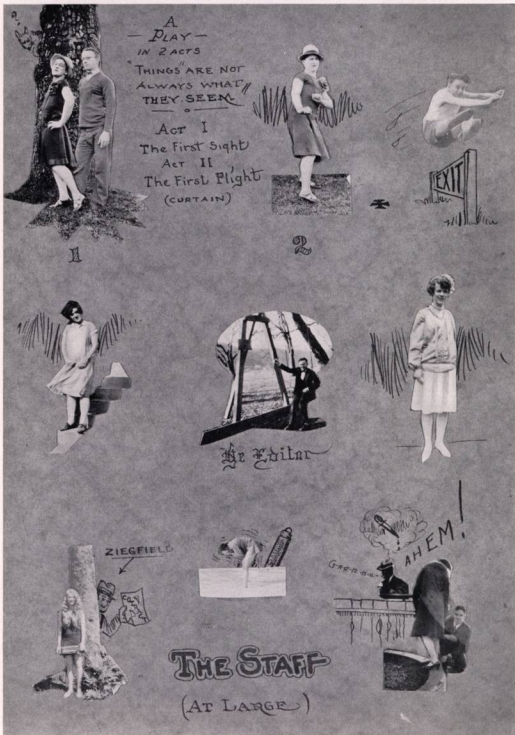 A
PLAY
IN 2 ACTS
"THINGS" ARE NOT
ALWAYS WHAT
THEY SEEM"
ACT I
The First Sight
ACT II
The First Flight
(CURTAIN)
EXIT
1
2
Ye Editor
ZIEGFIELD
AHEM!
THE STAFF
(AT LARGE)